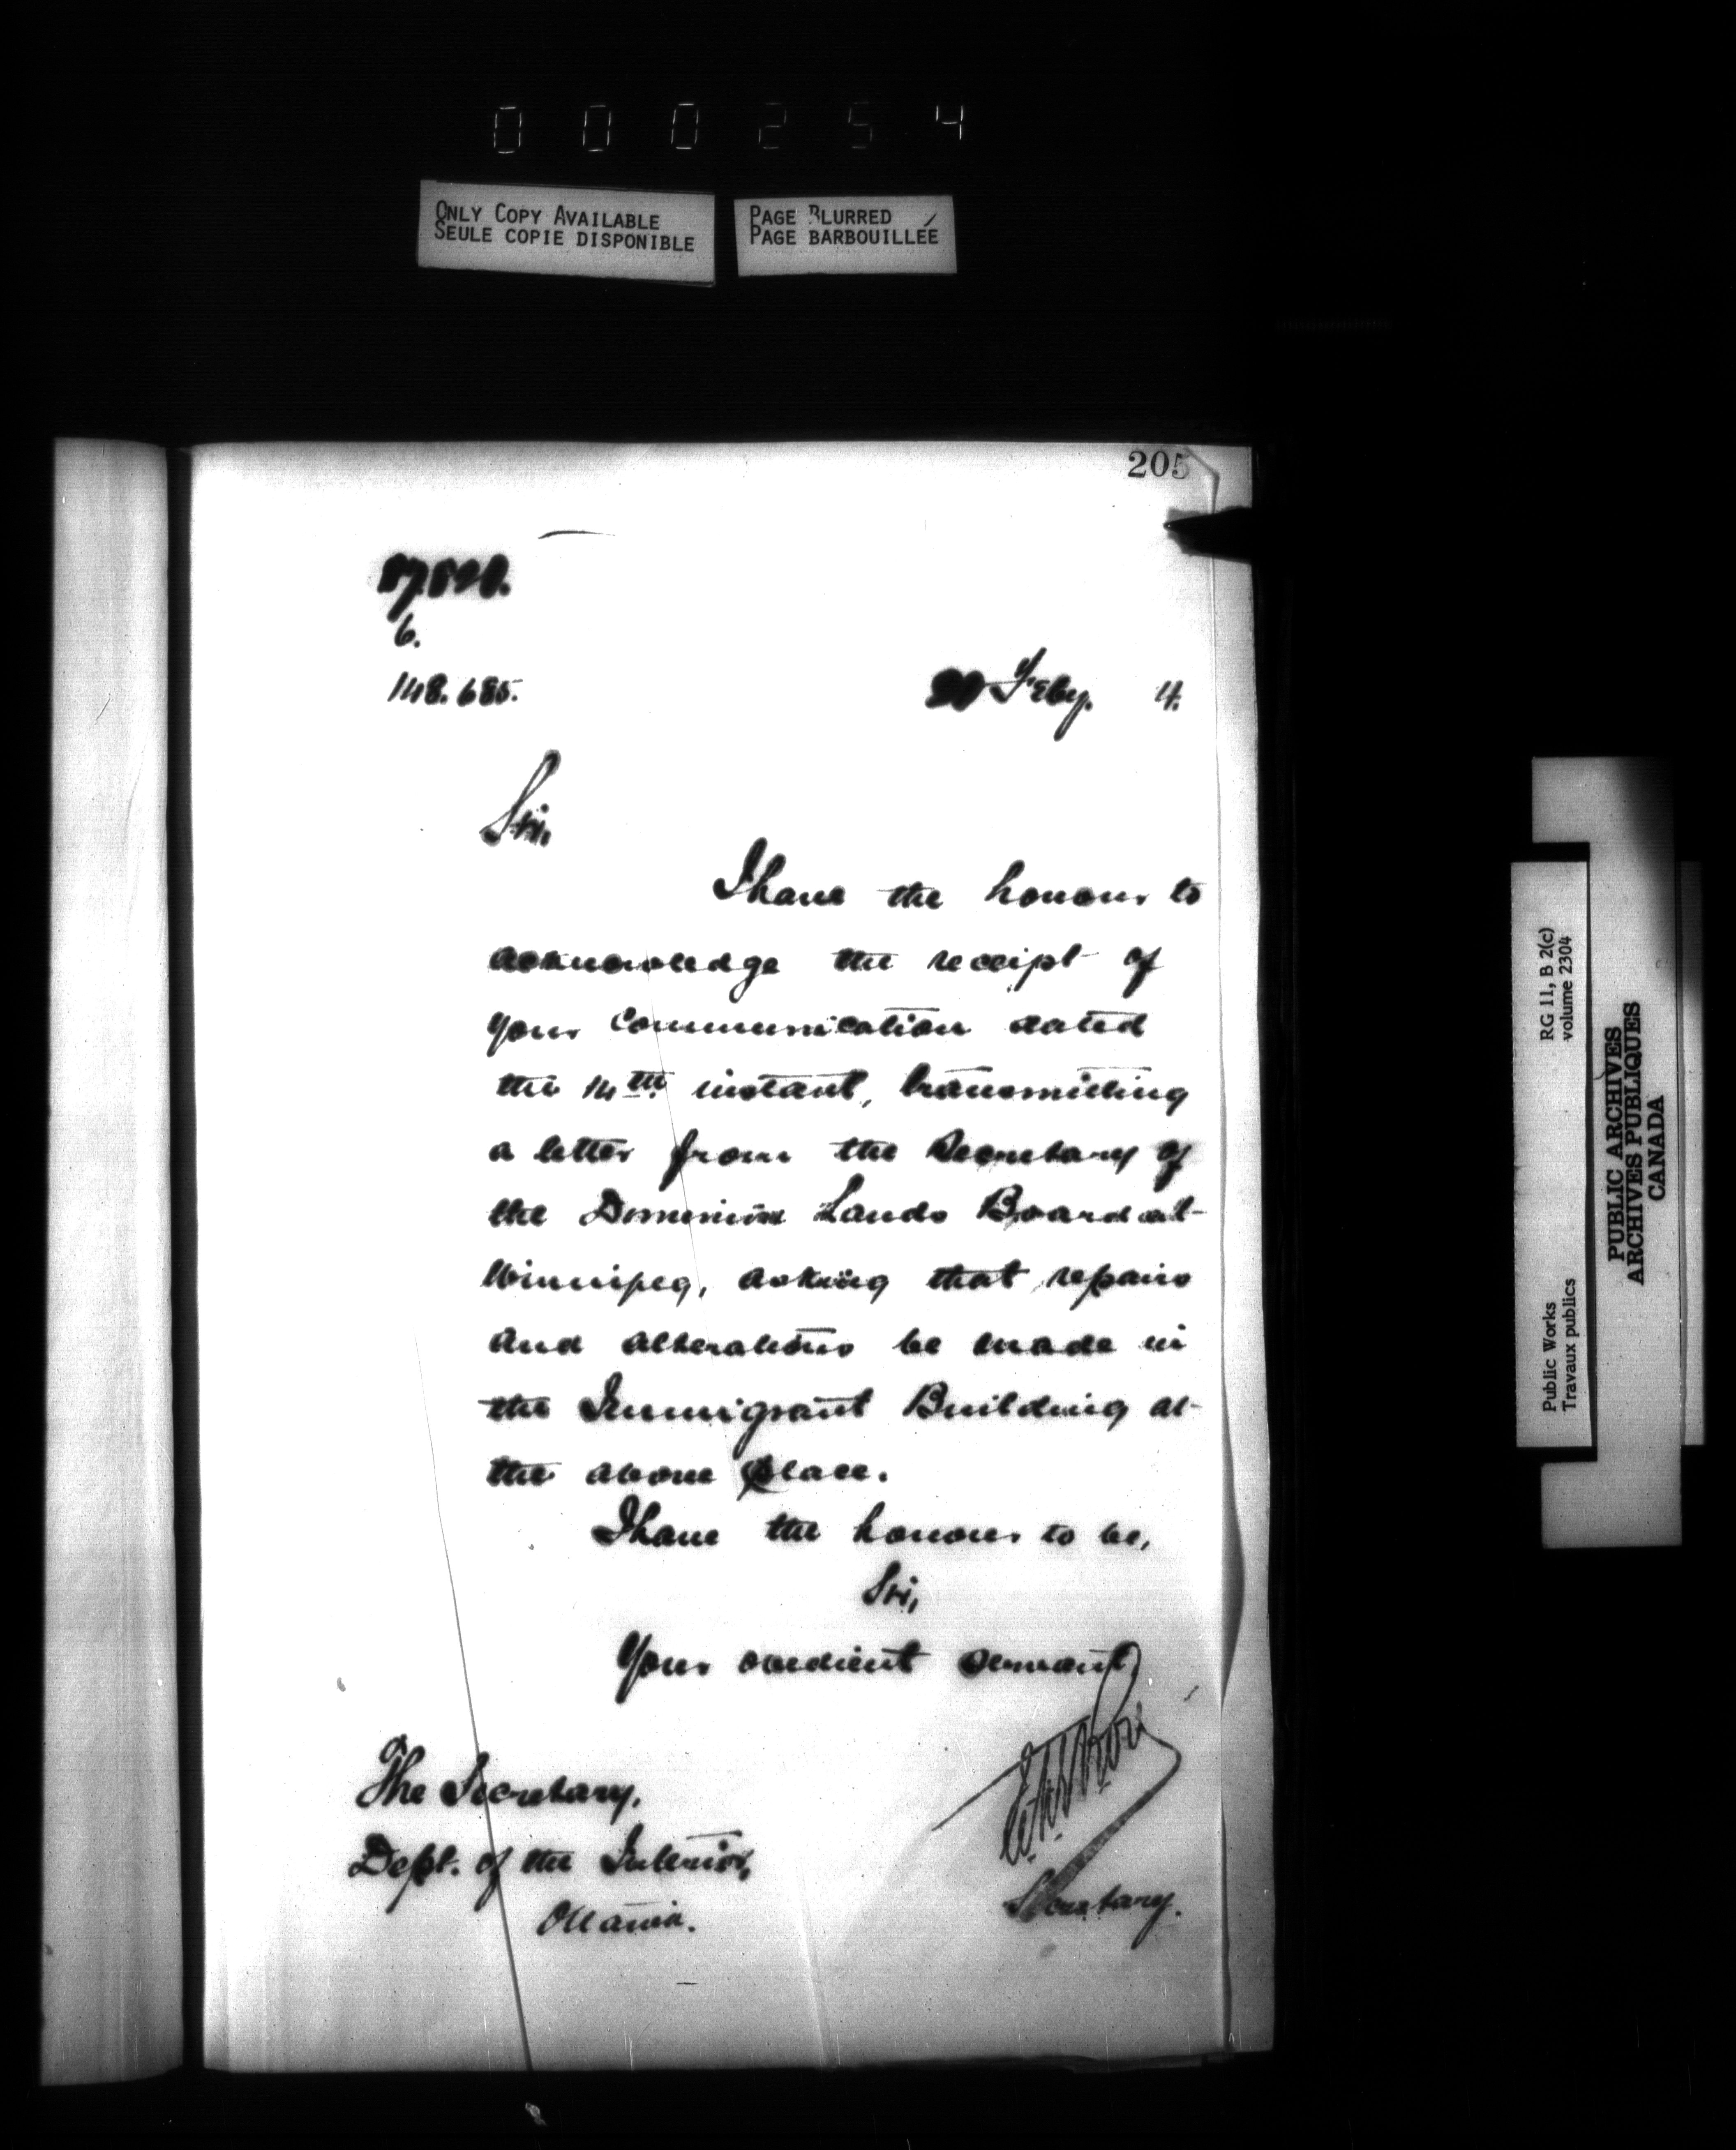 000254
ONLY COPY AVAILABLE
SEULE COPIE DISPONIBLE
PAGE BLURRED
PAGE BARBOUILLÉE
205
6.
148.685.
Feby. 4.
Sir,
I have the honour to
acknowledge the receipt of
your communication dated
the 14th instant, transmitting
a letter from the Secretary of
the Dominion Lands Board at
Winnipeg, asking that repairs
and alterations be made in
the Immigrant Building at
the above place.
I have the honour to be,
Sir,
Your obedient servant
The Secretary,
Dept. of the Interior,
Ottawa.
Secretary.
Public Works
Travaux publics
RG 11, B 2(c)
volume 2304
PUBLIC ARCHIVES
ARCHIVES PUBLIQUES
CANADA